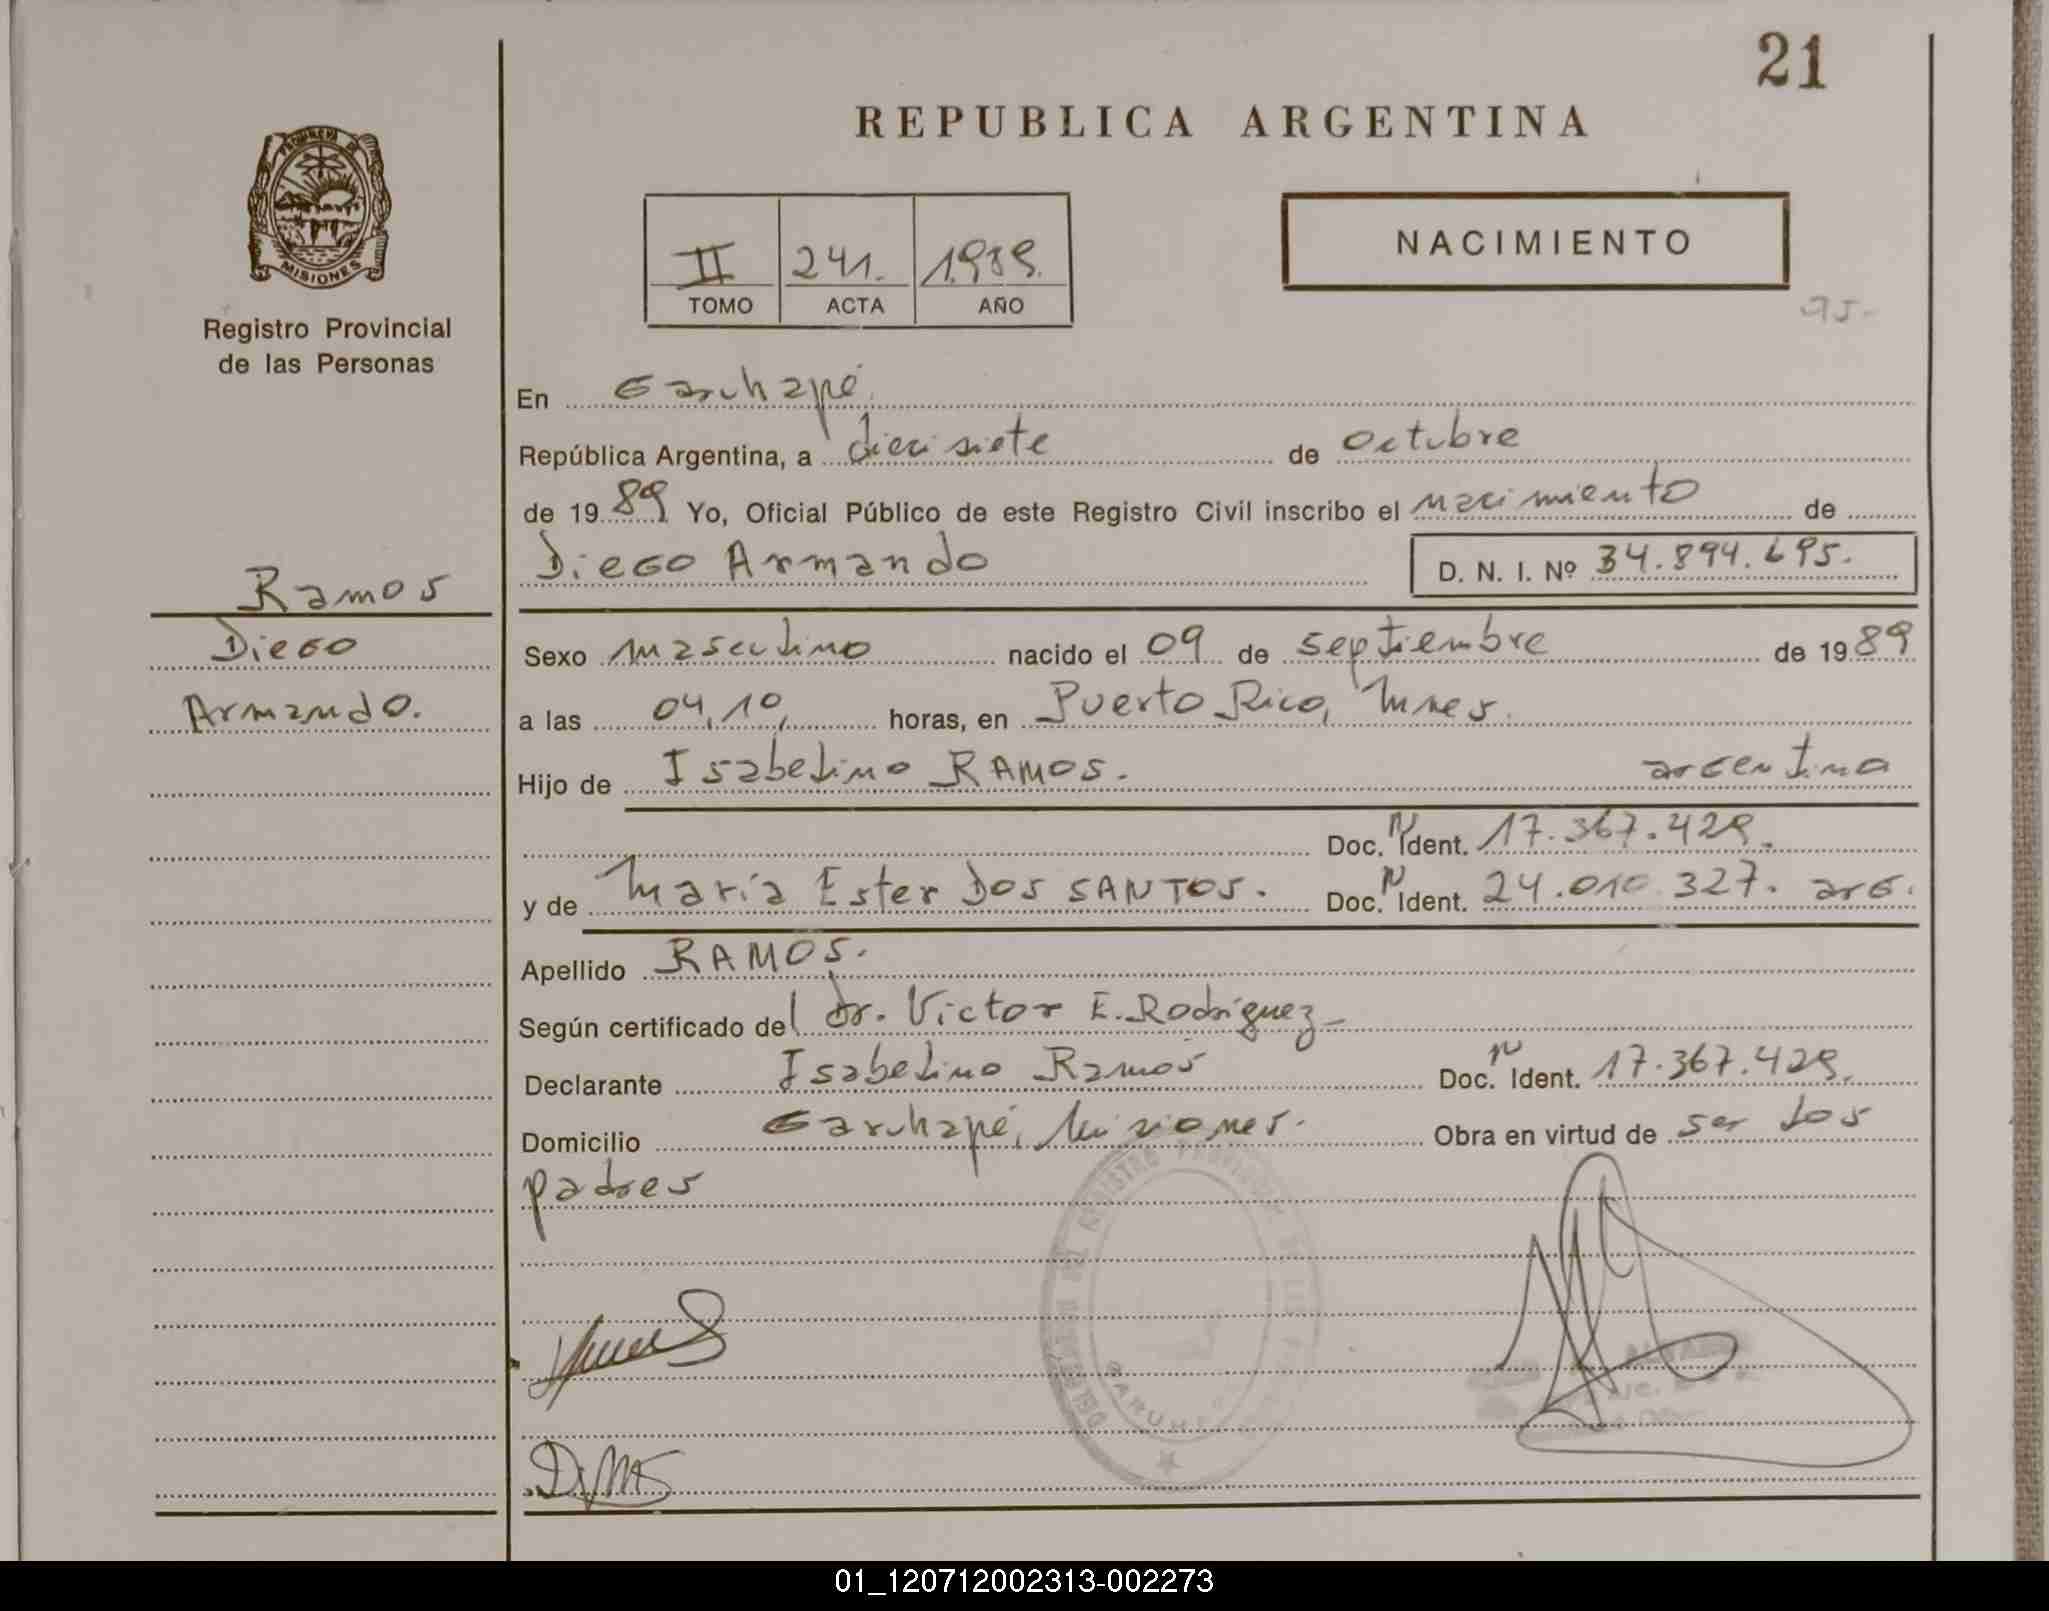 21
REPUBLICA ARGENTINA
PROVINCIA DE
MISIONES
Registro Provincial
de las Personas
II 241. 1989.
TOMO ACTA AÑO
NACIMIENTO
95-
En Garuhapé
República Argentina, a diecisiete de octubre
de 1989 Yo, Oficial Público de este Registro Civil inscribo el nacimiento de
Diego Armando D. N. I. Nº 34.894.695.
Ramos
Diego
Armando.
Sexo masculino nacido el 09 de septiembre de 1989
a las 04,10, horas, en Puerto Rico, Mnes.
Hijo de Isabelino RAMOS. argentina
Doc. N Ident. 17.367.429.
y de María Ester DOS SANTOS. Doc. N Ident. 24.010.327. arg.
Apellido RAMOS.
Según certificado del dr. Victor E. Rodriguez-
Declarante Isabelino Ramos Doc. N Ident. 17.367.429.
Domicilio Garuhapé, Misiones. Obra en virtud de ser los
padres
01_120712002313-002273